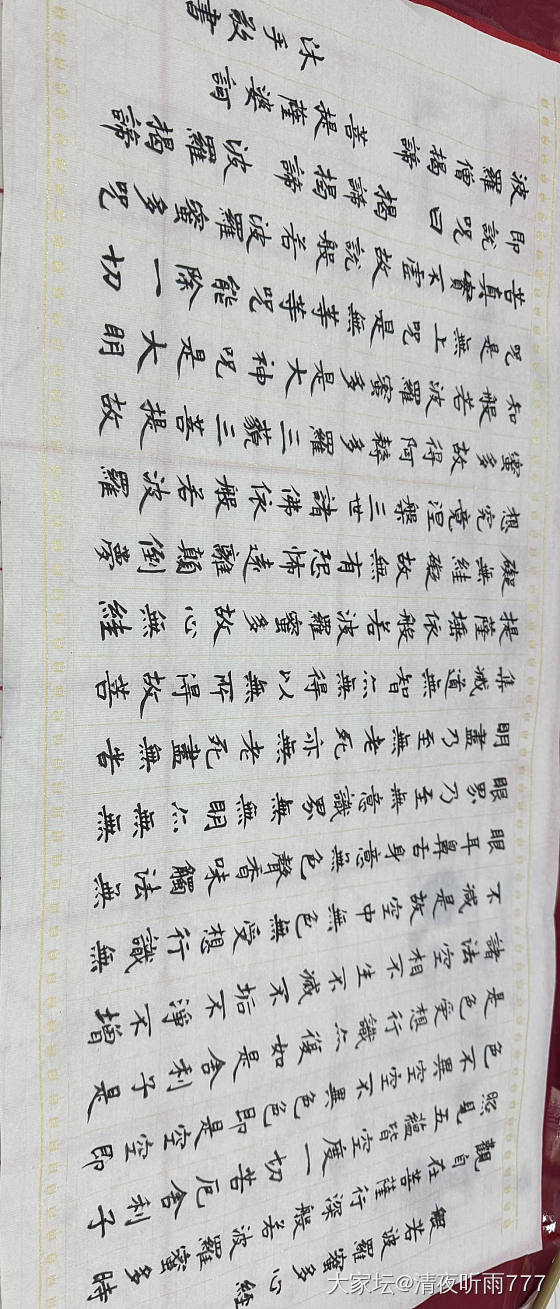 般若波羅蜜多心經
觀自在菩薩行深般若波羅蜜多時
照見五蘊皆空度一切苦厄舍利子
色不異空空不異色色即是空空即
是色受想行識亦復如是舍利子是
諸法空相不生不滅不垢不淨不增
不減是故空中無色無受想行識無
眼耳鼻舌身意無色聲香味觸法無
眼界乃至無意識界無無明亦無無
明盡乃至無老死亦無老死盡無苦
集滅道無智亦無得以無所得故菩
提薩埵依般若波羅蜜多故心無罣
礙無罣礙故無有恐怖遠離顛倒夢
想究竟涅槃三世諸佛依般若波羅
蜜多故得阿耨多羅三藐三菩提故
知般若波羅蜜多是大神咒是大明
咒是無上咒是無等等咒能除一切
苦真實不虛故說般若波羅蜜多咒
即說咒曰 揭諦揭諦 波羅揭諦
波羅僧揭諦 菩提薩婆訶
沐手敬書
大家坛@清夜听雨777